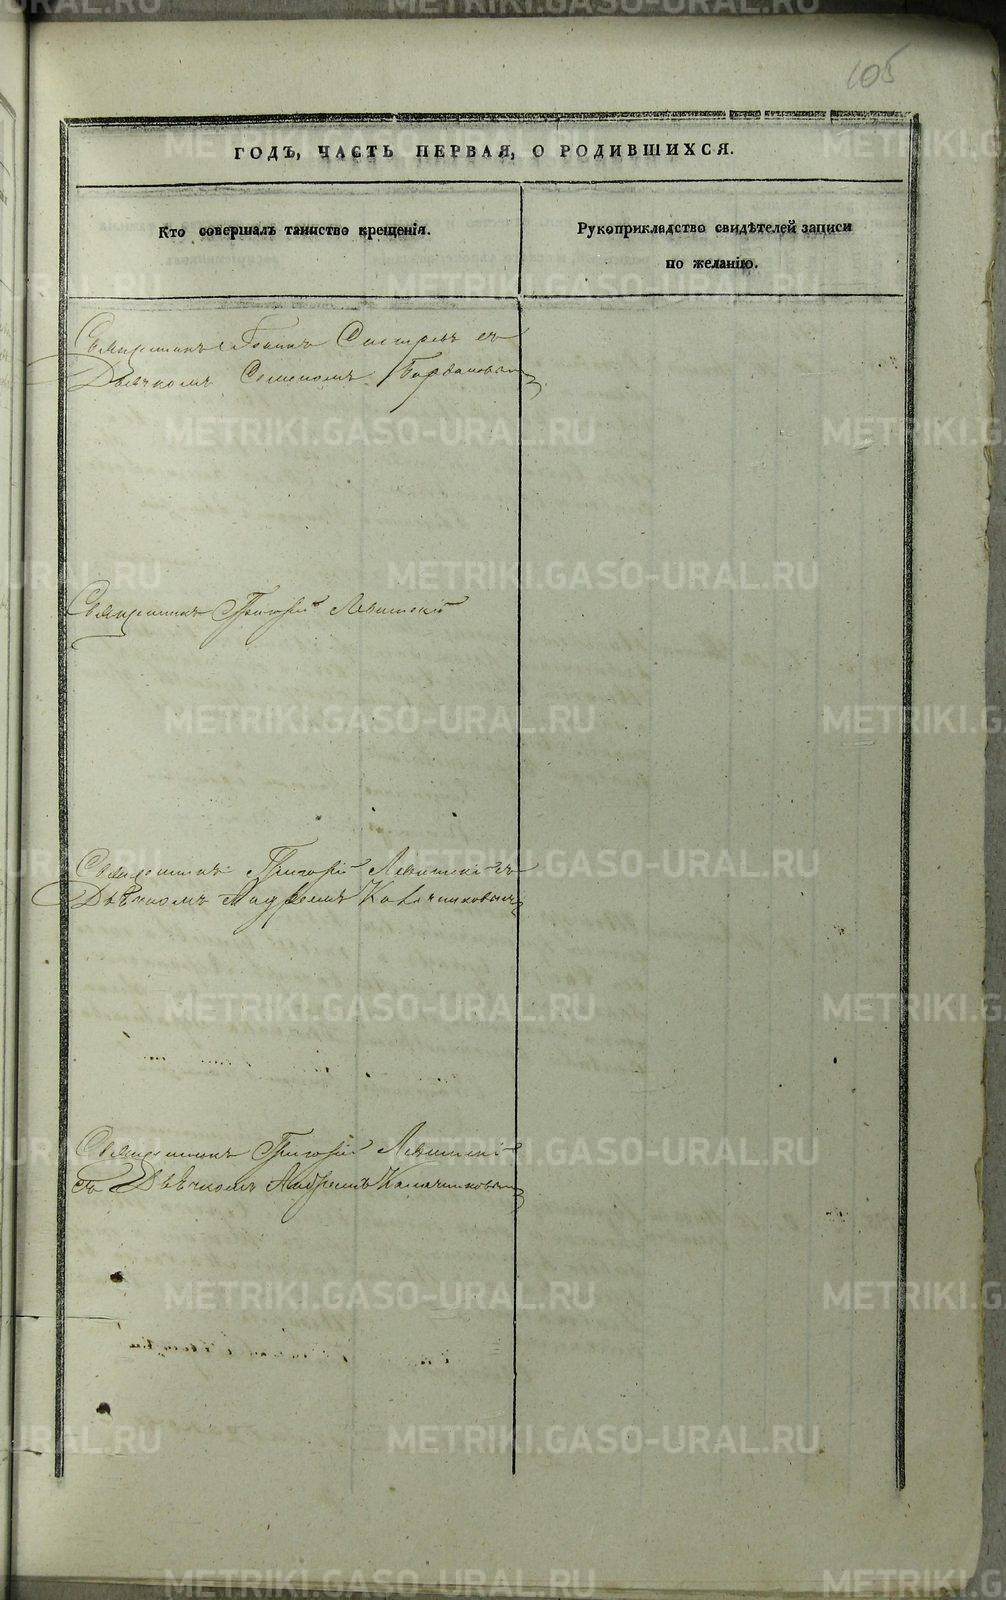 105
ГОДЪ, ЧАСТЬ ПЕРВАЯ, О РОДИВШИХСЯ.
Кто совершалъ таинство крещенія.
Рукоприкладство свидѣтелей записи
по желанію.
Священникъ Іоаннъ съ
Дьячкомъ Семеномъ
Священникъ Григорій Левитскій
Священникъ Григорій Левитскій съ
Дьячкомъ Андреемъ
Священникъ Григорій Левитскій
съ Дьячкомъ Андреемъ
METRIKI.GASO-URAL.RU